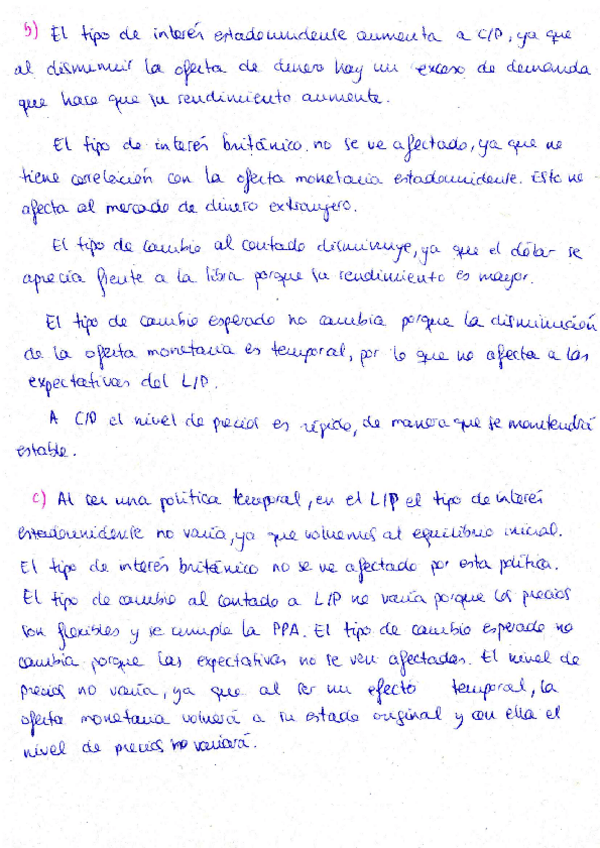 b) El tipo de interés estadounidense aumenta a C/P, ya que
al disminuir la oferta de dinero hay un exceso de demanda
que hace que su rendimiento aumente.
El tipo de interés británico no se ve afectado, ya que no
tiene correlación con la oferta monetaria estadounidense. Esto no
afecta al mercado de dinero extranjero.
El tipo de cambio al contado disminuye, ya que el dólar se
aprecia frente a la libra porque su rendimiento es mayor.
El tipo de cambio esperado no cambia porque la disminución
de la oferta monetaria es temporal, por lo que no afecta a las
expectativas del L/P.
A C/P el nivel de precios es rígido, de manera que se mantendrá
estable.
c) Al ser una política temporal, en el L/P el tipo de interés
estadounidense no varía, ya que volvemos al equilibrio inicial.
El tipo de interés británico no se ve afectado por esta política.
El tipo de cambio al contado a L/P no varía porque los precios
son flexibles y se cumple la PPA. El tipo de cambio esperado no
cambia porque las expectativas no se ven afectadas. El nivel de
precios no varía, ya que al ser un efecto temporal, la
oferta monetaria volverá a su estado original y con ella el
nivel de precios no variará.